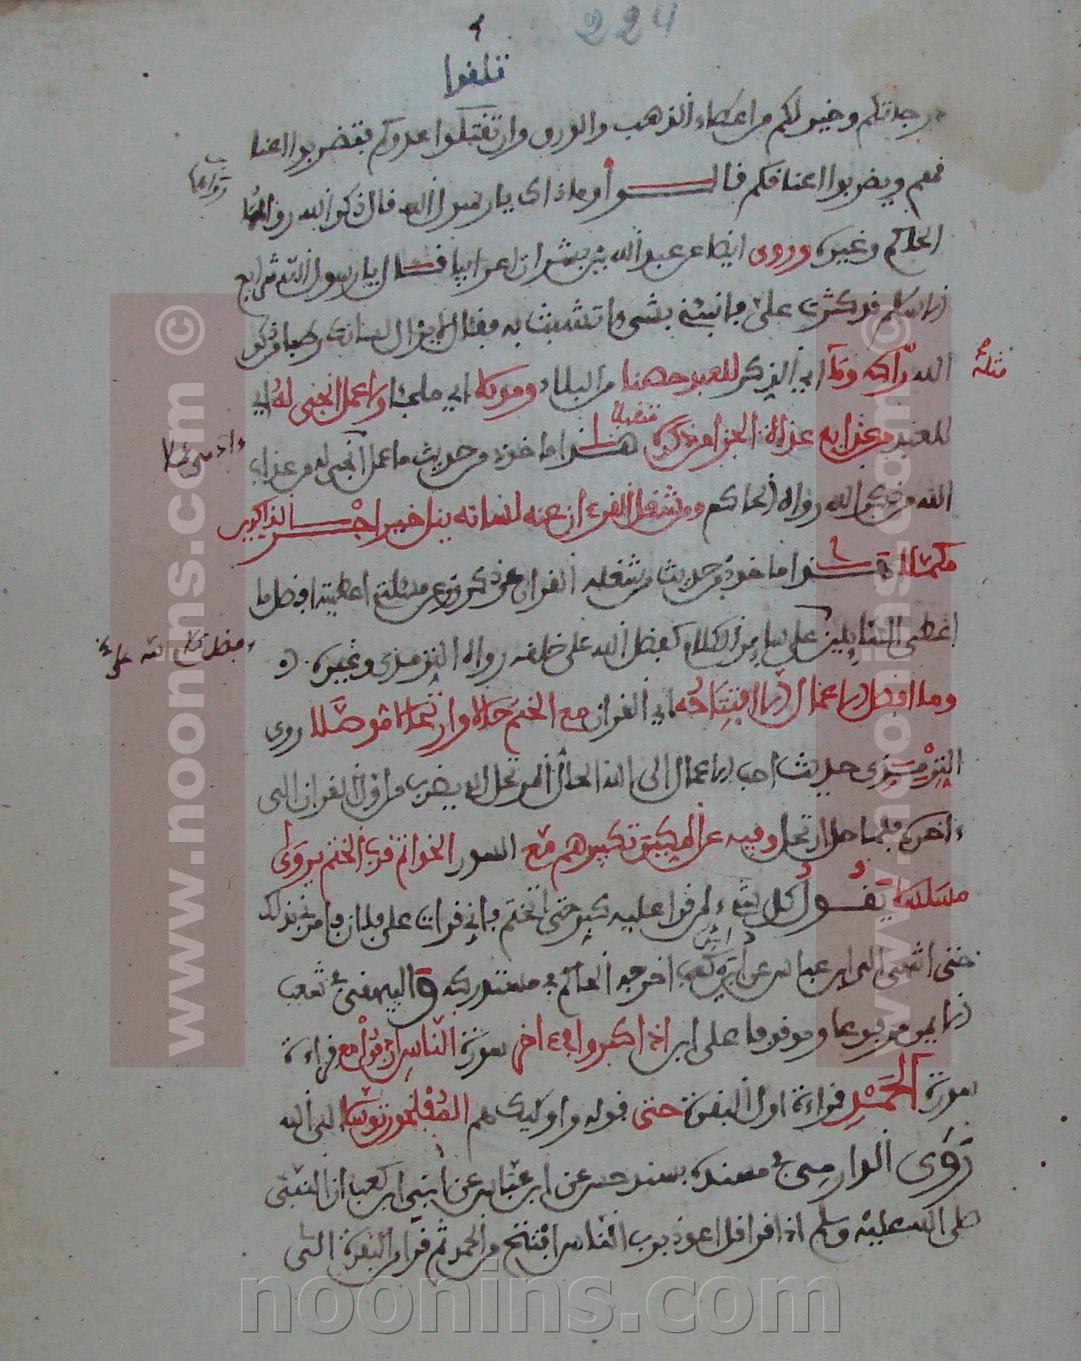 224
تلفوا
درجاتكم وخير لكم من اعطاء الذهب والورق وان تلقوا عدوكم فتضربوا اعنا
فهم ويضربوا اعناقكم فالـوا وماذاك يا رسول الله قال ذكر الله رواه
الحاكم وغيره وروى ايضا عن عبد الله بن بشر ان اعرابيا قال يا رسول الله شرايع
الاسلام قد كثرت علي فانبئني بشيء اتشبث به فقال لا يزال لسانك رطبا من ذكر
الله
اي الذكر للعبد حصنا من البلاء وموئلا اي ملجئا وما عمل انجى له اي
للعبد من عذابه غداة الجزا من ذكره متقبلا هذا ماخوذ من حديث ما عمل انجى له من عذاب
الله من ذكر الله رواه الحاكم ومن شغل القرءان عنه لسانه ينل خير اجر الذاكرين
مكملا هذا ماخوذ من حديث من شغله القرءان عن ذكري وعن مسئلتي اعطيته افضل ما
اعطي السائلين
كفضل الله على خلقه رواه الترمذي وغيره
وما افضل الاعمال الا افتتاحه اي القرءان مع الختم حلا وارتحالا موصلا روى
الترمذي حديث احب الاعمال الى الله الحال المرتحل الذي يضرب من اول القرءان الى
ءاخره كلما حل ارتحل وفيه عن المكيين تكبيرهم مع السور الخواتم قرب الختم يروى
مسلسلا يقول كل شيخ لمن قرا عليه كبر حتى تختم فاني قرات على فلان فامرني بذلك
حتى انتهى الى ابن عباس عن ابي بن كعب اخرجه الحاكم في مستدركه والبيهقي في شعب
الايمن مرفوعا وموقوفا على ابي اذا كبروا في ءاخر سورة الناس اردفوا مع قراءة
سورة الحمد قراءة اول البقرة حتى قوله واولئك هم المفلحون توسلا الى الله
روى الدارمي في مسنده بسند حسن عن ابن عباس عن ابي بن كعب ان النبي
صلى الله عليه وسلم اذا قرا قل اعوذ برب الناس افتتح من الحمد ثم قرا من البقرة الى
www.noonins.com ©
www.noonins.com ©
noonins.com